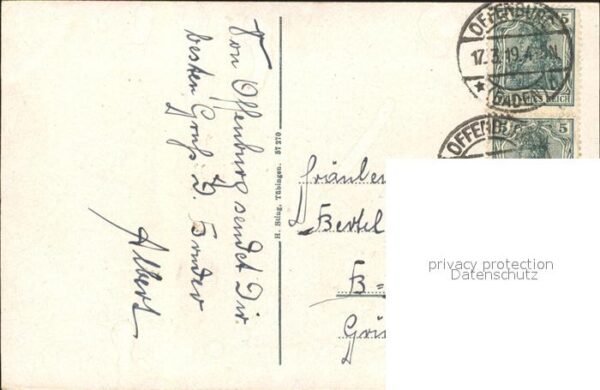 Von Offenburg sendet Dir
besten Gruß D. Bruder
Albert
H. Sting, Tübingen. 57270
OFFENBURG
17.3.19.4-5N
* (BADEN)
5
REICH
OFFENBURG
5
Fräulein
Bertel
B-
privacy protection
Datenschutz